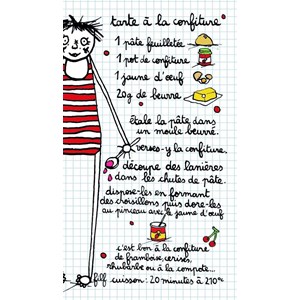 tarte à la confiture
1 pâte feuilletée
1 pot de confiture
1 jaune d'œuf
20g de beurre
étale la pâte dans
un moule beurré.
verses-y la confiture.
découpe des lanières
dans les chutes de pâte.
dispose-les en formant
des croisillons puis dore-les
au pinceau avec le jaune d'œuf
c'est bon à la confiture
de framboise, cerises,
rhubarbe ou à la compote...
cuisson: 20 minutes à 210°